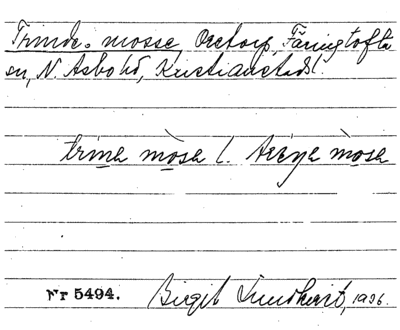 Trinde- mosse, Oretorp, Färingtofta
sn, N. Åsbo hd, Kristianstads l.
trina mòsa l. trinja mòsa
Nr 5494. Birgit Lundkvist, 1936.